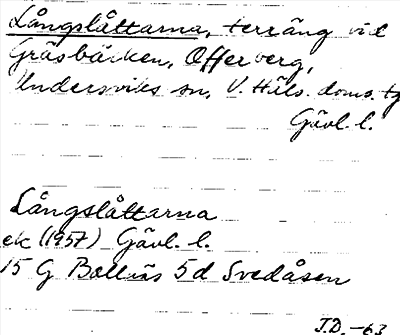 Långslåttarna, terräng vid
Gräsbäcken, Offerberg,
Undersviks sn, V. Häls. doms. tg
Gävl. l.
Långslåttarna
ek (1957) Gävl. l.
15 G Bollnäs 5d Svedåsen
J.D. -63